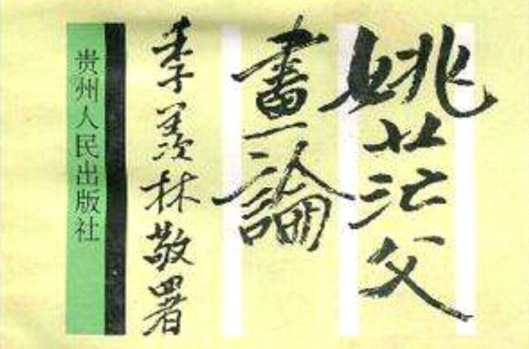 姚茫父
畫論
季羨林敬署
贵州人民出版社